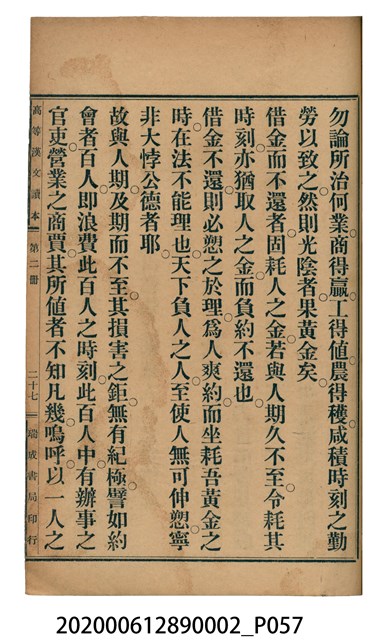 勿論所治何業。商得贏。工得値。農得穫。咸積時刻之勤
勞以致之。然則光陰者果黃金矣。
借金而不還者。固耗人之金。若與人期久不至。令耗其
時刻。亦猶取人之金而負約不還也。
借金不還。則必愬之於理。爲人爽約。而坐耗吾黃金之
時。在法不能理也。天下負人之人。至使人無可伸愬。寧
非大悖公德者耶。
故與人期。及期而不至。其損害之鉅。無有紀極。譬如約
會者百人。即浪費此百人之時刻。此百人中。有辦事之
官吏。營業之商賈。其所値者不知凡幾。嗚呼。以一人之
高等漢文讀本 第二册 二十七 瑞成書局印行
202000612890002_P057